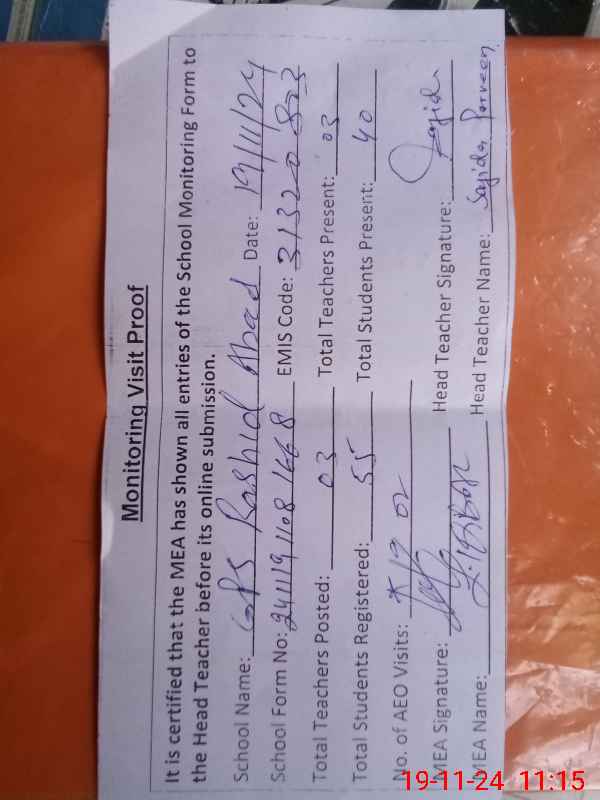 Monitoring Visit Proof
It is certified that the MEA has shown all entries of the School Monitoring Form to
the Head Teacher before its online submission.
School Name: GPS Rashid Abad Date: 19/11/24
School Form No: 241119 1108 1668 EMIS Code: 31320823
Total Teachers Posted: 03 Total Teachers Present: 03
Total Students Registered: 55 Total Students Present: 40
No. of AEO Visits: 02
MEA Signature: Head Teacher Signature: Sajida
MEA Name: Head Teacher Name: Sajida Parveen
19-11-24 11:15